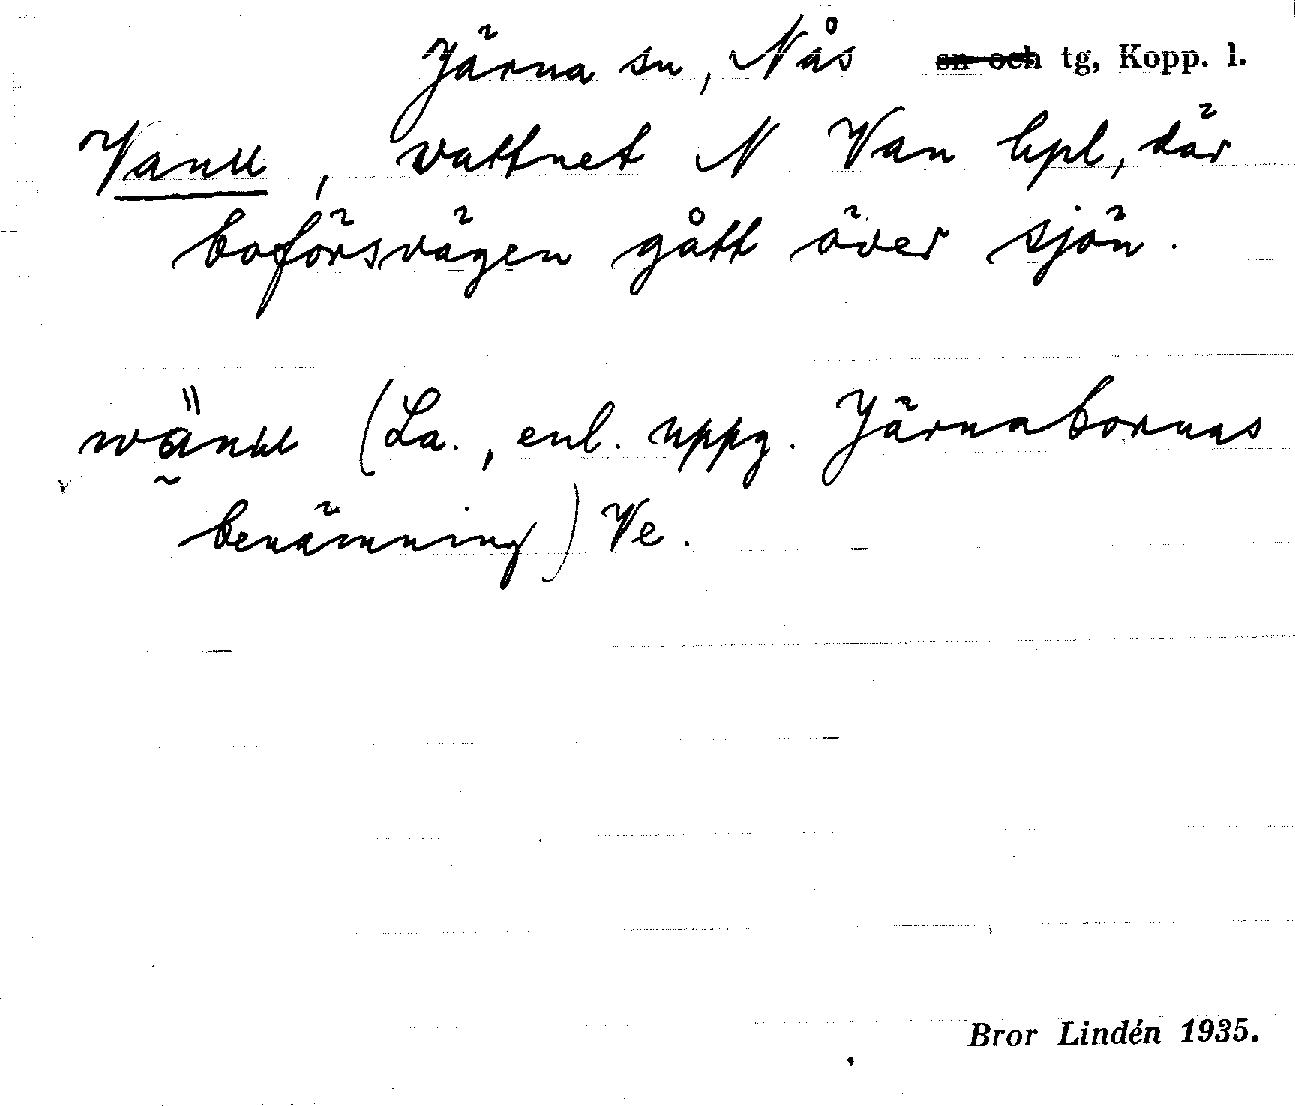 Järna sn, Nås ~~sn och~~ tg, Kopp. l.
Vanu, vattnet N Van hpl, där
boförsvägen gått över sjön.
(La., enl. uppg. Järnabornas
benämning) Ve.
Bror Lindén 1935.